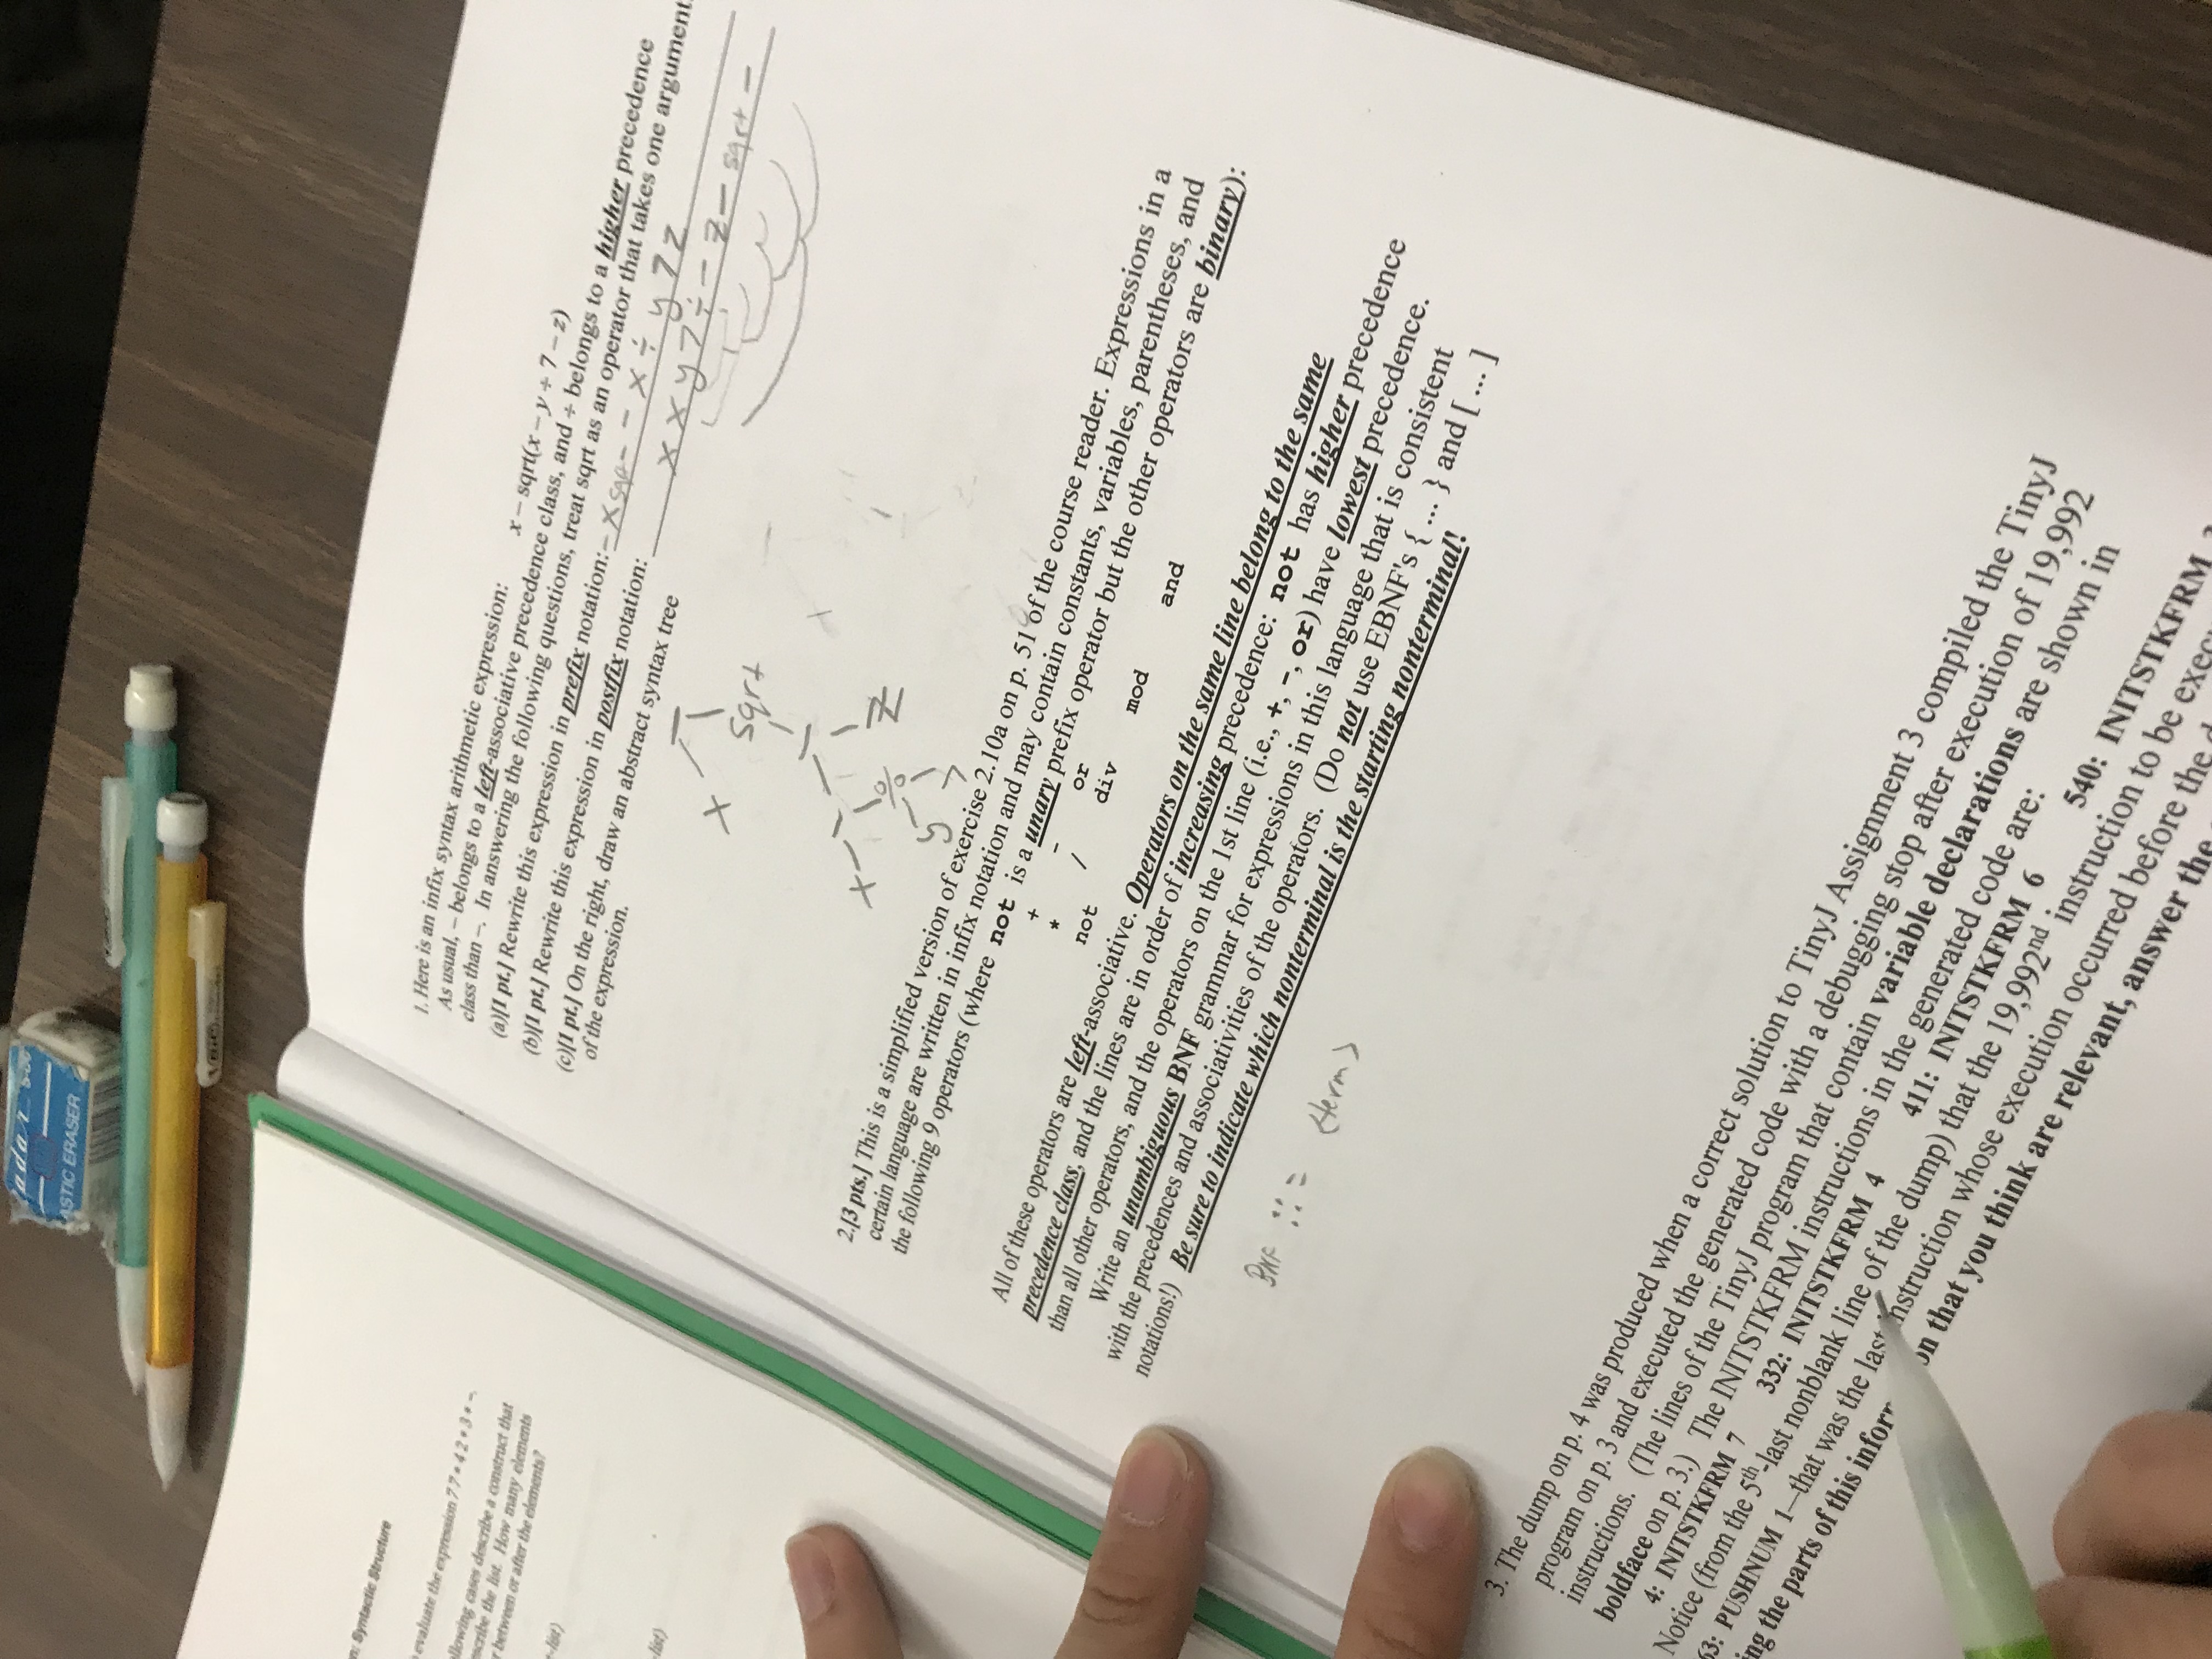 adar
ASTIC ERASER
BIC
n: Syntactic Structure
evaluate the expression 7 7 * 4 2 * 3 * -.
llowing cases describe a construct that
scribe the list. How many elements
between or after the elements?
-list)
-list)
1. Here is an infix syntax arithmetic expression: x – sqrt(x – y ÷ 7 – z)
As usual, – belongs to a left-associative precedence class, and ÷ belongs to a higher precedence
class than –. In answering the following questions, treat sqrt as an operator that takes one argument.
(a)[1 pt.] Rewrite this expression in prefix notation: - x sqrt - - x ÷ y 7 z
(b)[1 pt.] Rewrite this expression in postfix notation: x x y 7 ÷ - z - sqrt -
(c)[1 pt.] On the right, draw an abstract syntax tree
of the expression.
-
x
sqrt
-
x - z
÷
y 7
2.[3 pts.] This is a simplified version of exercise 2.10a on p. 51 of the course reader. Expressions in a
certain language are written in infix notation and may contain constants, variables, parentheses, and
the following 9 operators (where not is a unary prefix operator but the other operators are binary):
+ - or
* / div mod and
not
All of these operators are left-associative. Operators on the same line belong to the same
precedence class, and the lines are in order of increasing precedence: not has higher precedence
than all other operators, and the operators on the 1st line (i.e., +, -, or) have lowest precedence.
Write an unambiguous BNF grammar for expressions in this language that is consistent
with the precedences and associativities of the operators. (Do not use EBNF's { ... } and [ ... ]
notations!) Be sure to indicate which nonterminal is the starting nonterminal!
BNF ::= <term>
3. The dump on p. 4 was produced when a correct solution to TinyJ Assignment 3 compiled the TinyJ
program on p. 3 and executed the generated code with a debugging stop after execution of 19,992
instructions. (The lines of the TinyJ program that contain variable declarations are shown in
boldface on p. 3.) The INITSTKFRM instructions in the generated code are:
4: INITSTKFRM 7 332: INITSTKFRM 4 411: INITSTKFRM 6 540: INITSTKFRM
Notice (from the 5th-last nonblank line of the dump) that the 19,992nd instruction to be exec
63: PUSHNUM 1—that was the last instruction whose execution occurred before the d
ing the parts of this infor on that you think are relevant, answer the